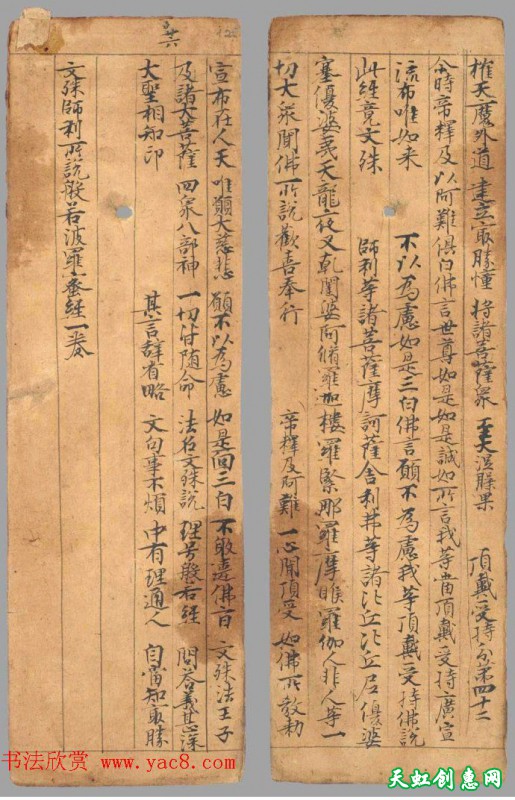 摧天魔外道 建立㝡勝憧 將諸菩薩衆 至大涅槃果 頂戴受持分第四十二
尒時帝釋及以阿難俱白佛言世尊如是如是誠如所言我等當頂戴受持廣宣
流布唯如来 不以為慮如是三白佛言願不為慮我等頂戴受持佛說
此經竟文殊 師利等諸菩薩摩訶薩舍利弗等諸比丘比丘尼優婆
塞優婆夷天龍夜叉乹闥婆阿脩羅迦樓羅緊那羅摩睺羅伽人非人等一
切大衆聞佛所說歡喜奉行 帝釋及阿難 一心開頂受 如佛所教勑
宣布在人天 唯願大慈悲 願不以為慮 如是面三白 不敢違佛旨 文殊法王子
及諸大菩薩 四衆八部神 一切皆随命 法名文殊說 理号般若經 問荅義甚深
大聖相知印 其言辞省略 文句事不煩 中有理通人 自當知㝡勝
文殊師利所說般若波羅蜜經一卷
书法欣赏
www.yac8.com
天虹创意网